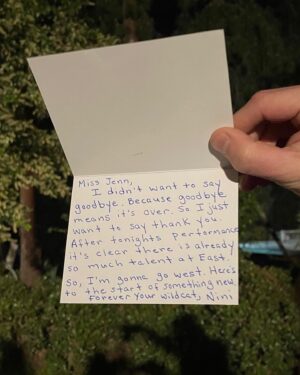 Miss Jenn,
I didn't want to say
goodbye. Because goodbye
means it's over. So I just
want to say thank you.
After tonights performance
it's clear there is already
so much talent at East.
So, I'm gonna go west. Here's
to the start of something new.
Forever your wildcat, Nini